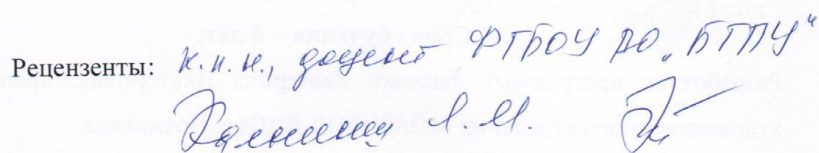 Рецензенты: к.п.н., доцент ФГБОУ ВО „БГПУ“
Л. М.